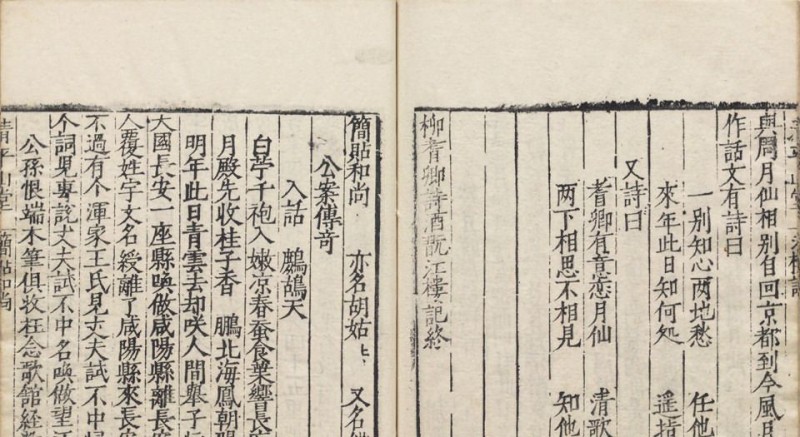 與周月仙相别自回京都到今風月
作話文有詩曰
一别知心两地愁 任他
來年此日知何処 遥指
又詩曰
耆卿有意恋月仙 清歌
两下相思不相見 知他
柳耆卿詩酒翫江樓記終
簡貼和尚 亦名胡姑〻 又名
公案傳竒
入話 鷓鴣天
白苧千袍入嫩凉春蚕食葉響長
月殿先收桂子香 鵬北海鳳朝陽
明年此日青雲去却咲人間舉子
大國長安一座縣喚做咸陽縣離長安
人覆姓宇文名綬離了咸陽縣來長安
不過有个渾家王氏見丈夫試不中
个詞児專說丈夫試不中名喚做望江
公孫恨端木筆俱收枉念歌館經
清平山堂 簡貼和尚